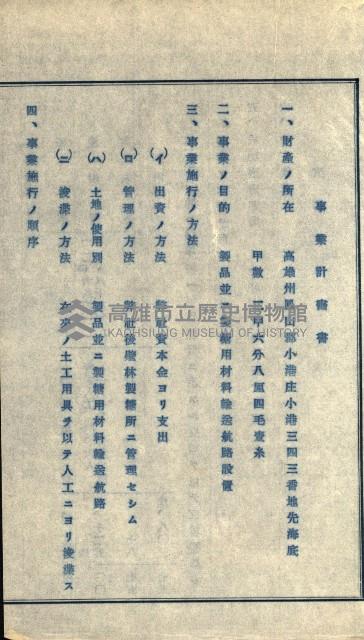 事業計畫書
一、財產ノ所在 高雄州鳳山郡小港庄小港三四三番地先海底
甲數 二甲六分八厘四毛壹糸
二、事業ノ目的 製品並ニ製糖用材料輸送航路設置
三、事業施行ノ方法
(イ) 出資ノ方法 弊社資本金ヨリ支出
(ロ) 管理ノ方法 弊社後壁林製糖所ニ管理セシム
(ハ) 土地ノ使用別 製品並ニ製糖用材料輸送航路
(ニ) 浚渫ノ方法 在來ノ土工用具ヲ以テ人工ニヨリ浚渫ス
四、事業施行ノ順序
高雄市立歷史博物館
KAOHSIUNG MUSEUM OF HISTORY